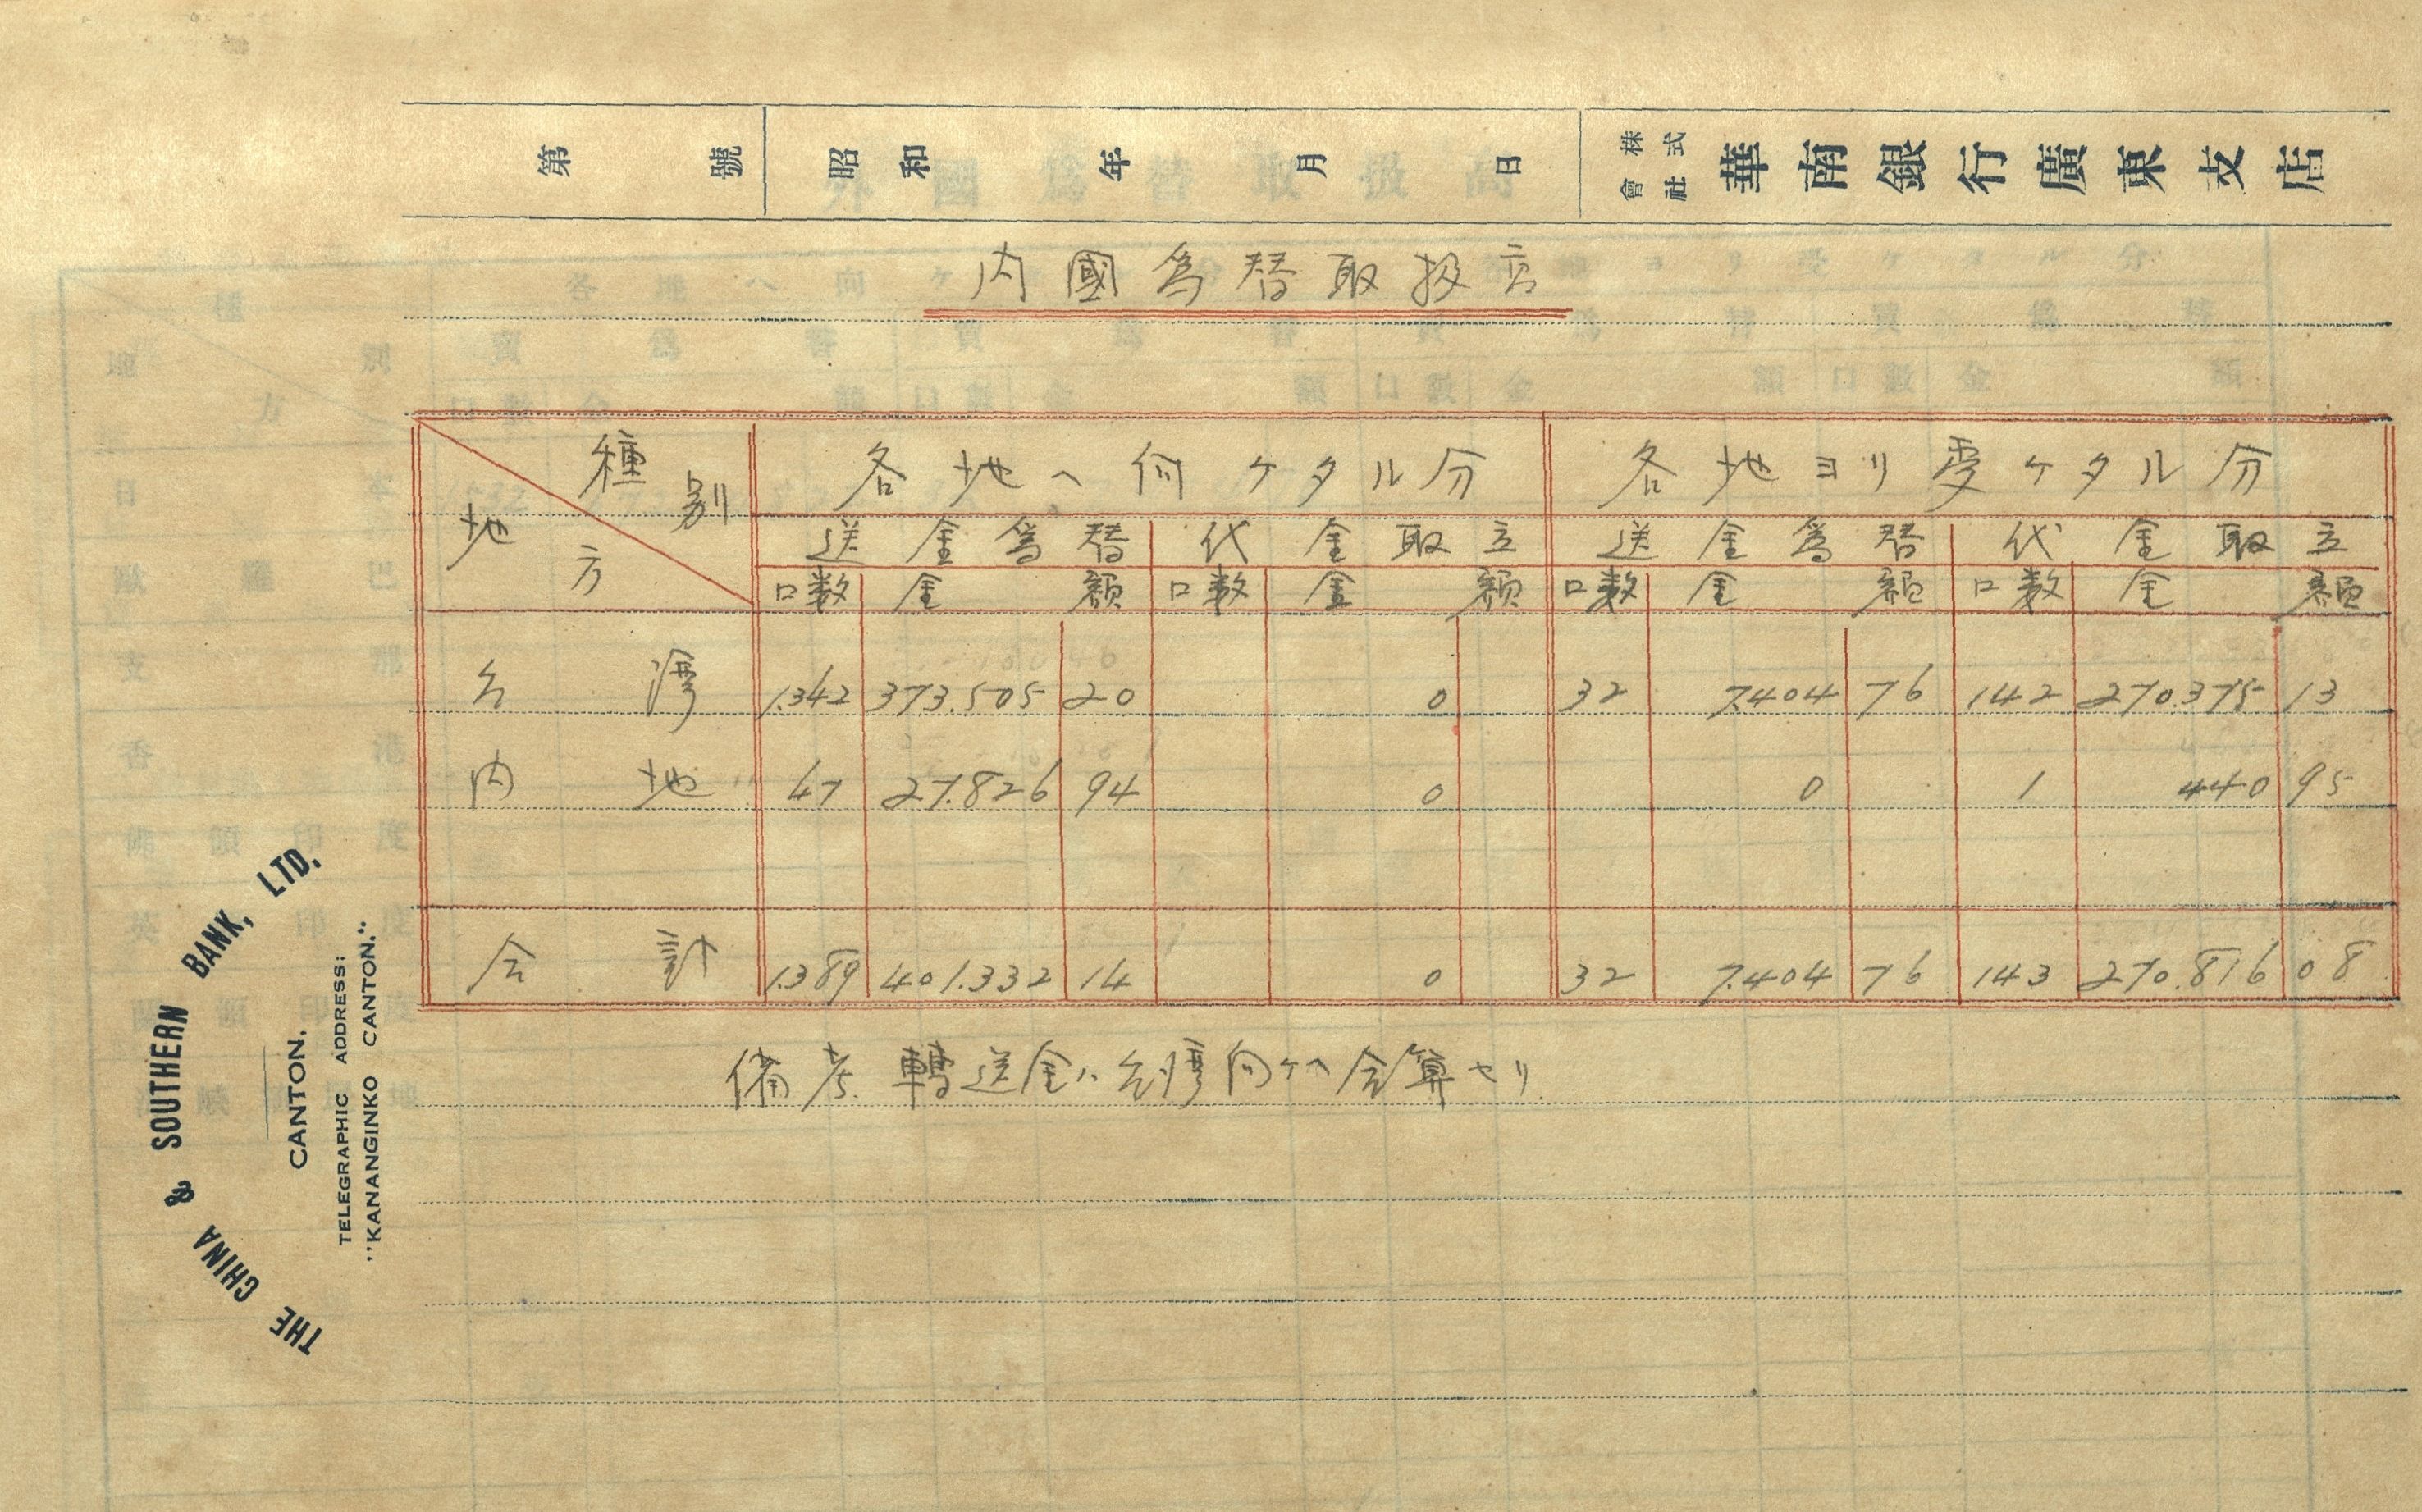 第 號 昭和 年 月 日 株式會社 華南銀行廣東支店
內國為替取扱高
種別 地方 各地へ向ケタル分 各地ヨリ受ケタル分
送金為替 代金取立 送金為替 代金取立
口数 金額 口数 金額 口数 金額 口数 金額
台湾 1.342 373.505 20 0 32 7.404 76 142 270.375 13
内地 47 27.826 94 0 0 1 440 95
合計 1.389 401.332 14 0 32 7.404 76 143 270.816 08
備考 轉送金ハ台湾向ケヘ合算セリ
THE CHINA & SOUTHERN BANK, LTD.
CANTON.
TELEGRAPHIC ADDRESS:
"KANANGINKO CANTON."